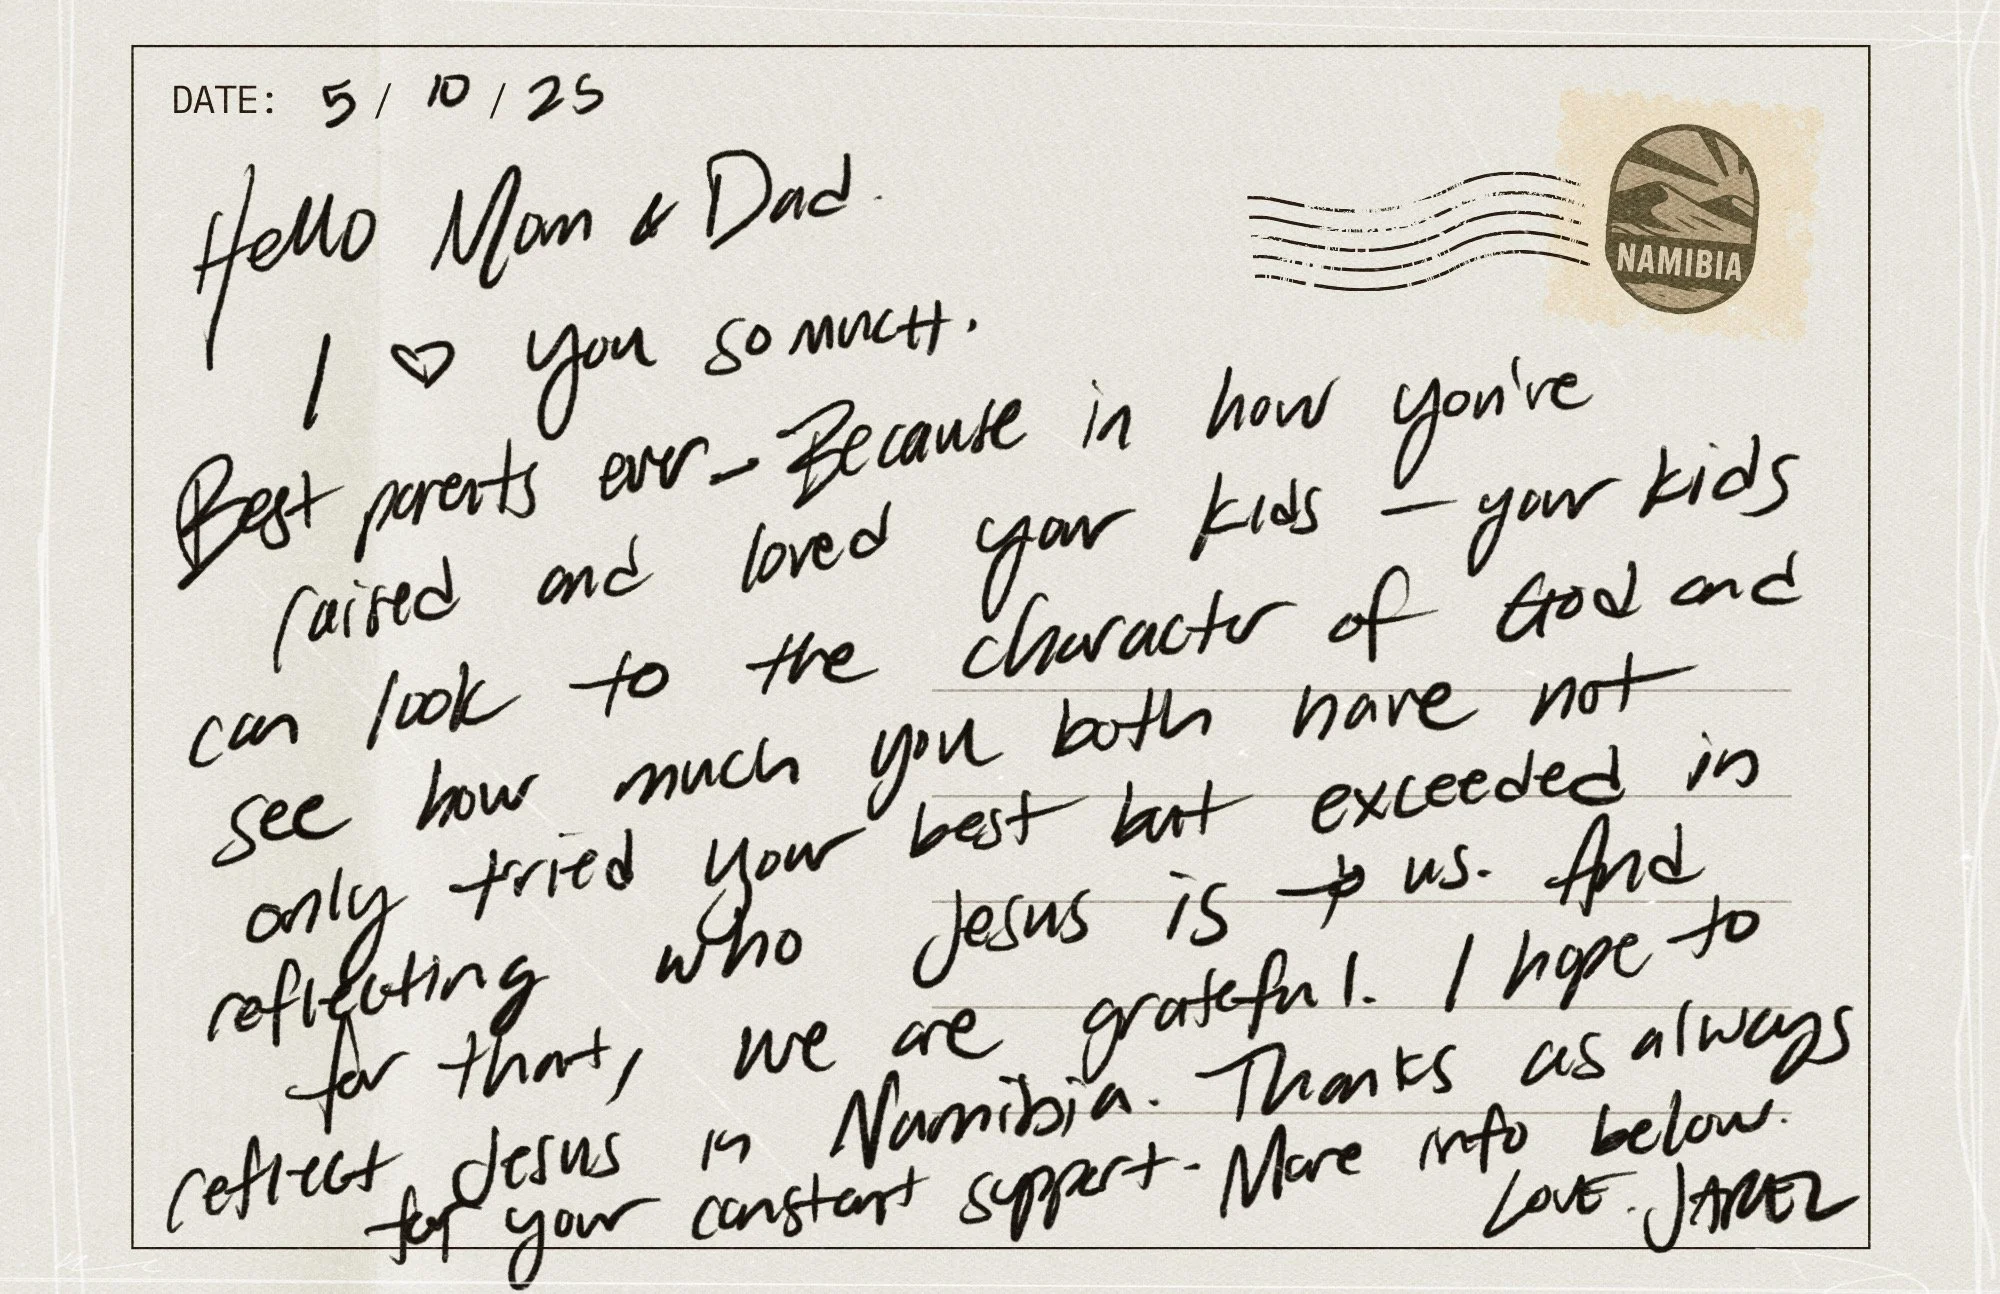 DATE: 5 / 10 / 25
NAMIBIA
Hello Mom & Dad.
I ♡ you so much.
Best parents ever - Because in how you've
raised and loved your kids - your kids
can look to the character of God and
see how much you both have not
only tried your best but exceeded in
reflecting who Jesus is to us. And
for that, we are grateful. I hope to
reflect Jesus in Namibia. Thanks as always
for your constant support - More info below.
LOVE. JAREZ